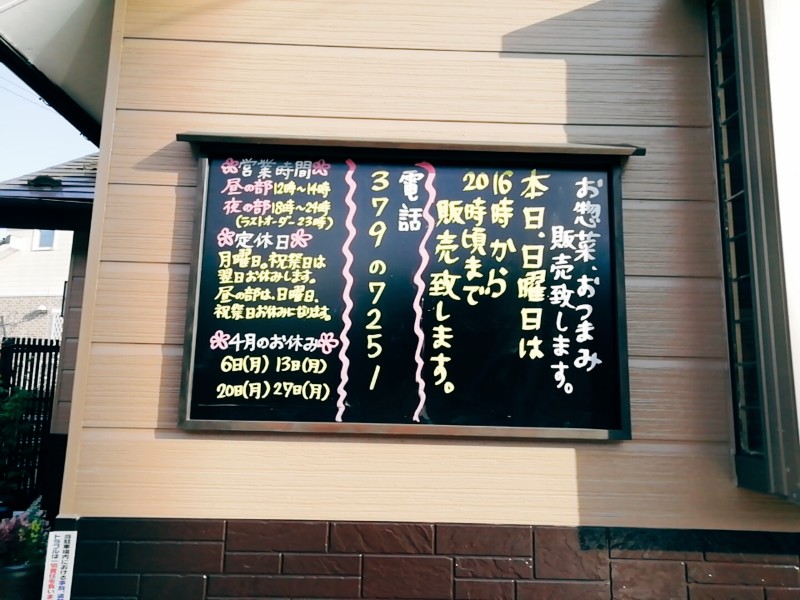 お惣菜、おつまみ
販売致します。
本日、日曜日は
16時から
20時頃まで
販売致します。
電話
379の7251
営業時間
昼の部12時〜14時
夜の部18時〜24時
(ラストオーダー23時)
定休日
月曜日。祝業日は
翌日お休みします。
昼の部は、日曜日、
祝業日お休みになります。
4月のお休み
6日(月) 13日(月)
20日(月) 27日(月)
当駐車場内における事故、盗
トラブルは一切責任を負いま